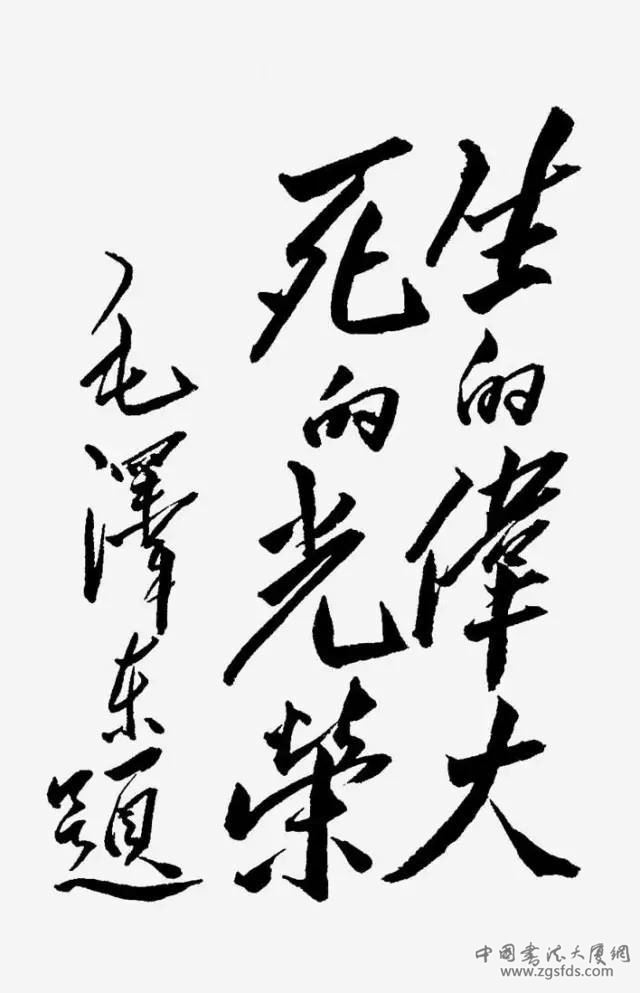 生的偉大
死的光榮
毛澤东題
中国书法大厦網
www.zgsfds.com